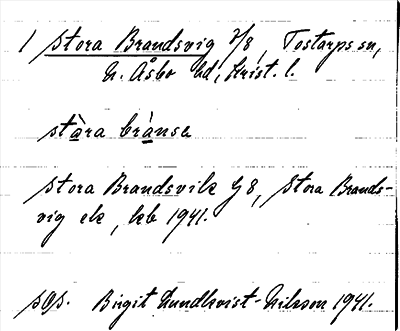 1 Stora Brandsvig 2/8, Tostarps sn,
N. Åsbo hd, Krist. l.
stàra brànsa
Stora Brandsvik G 8, Stora Brands-
vig ek, kb 1941.
sgs. Birgit Lundkvist-Nilsson 1941.